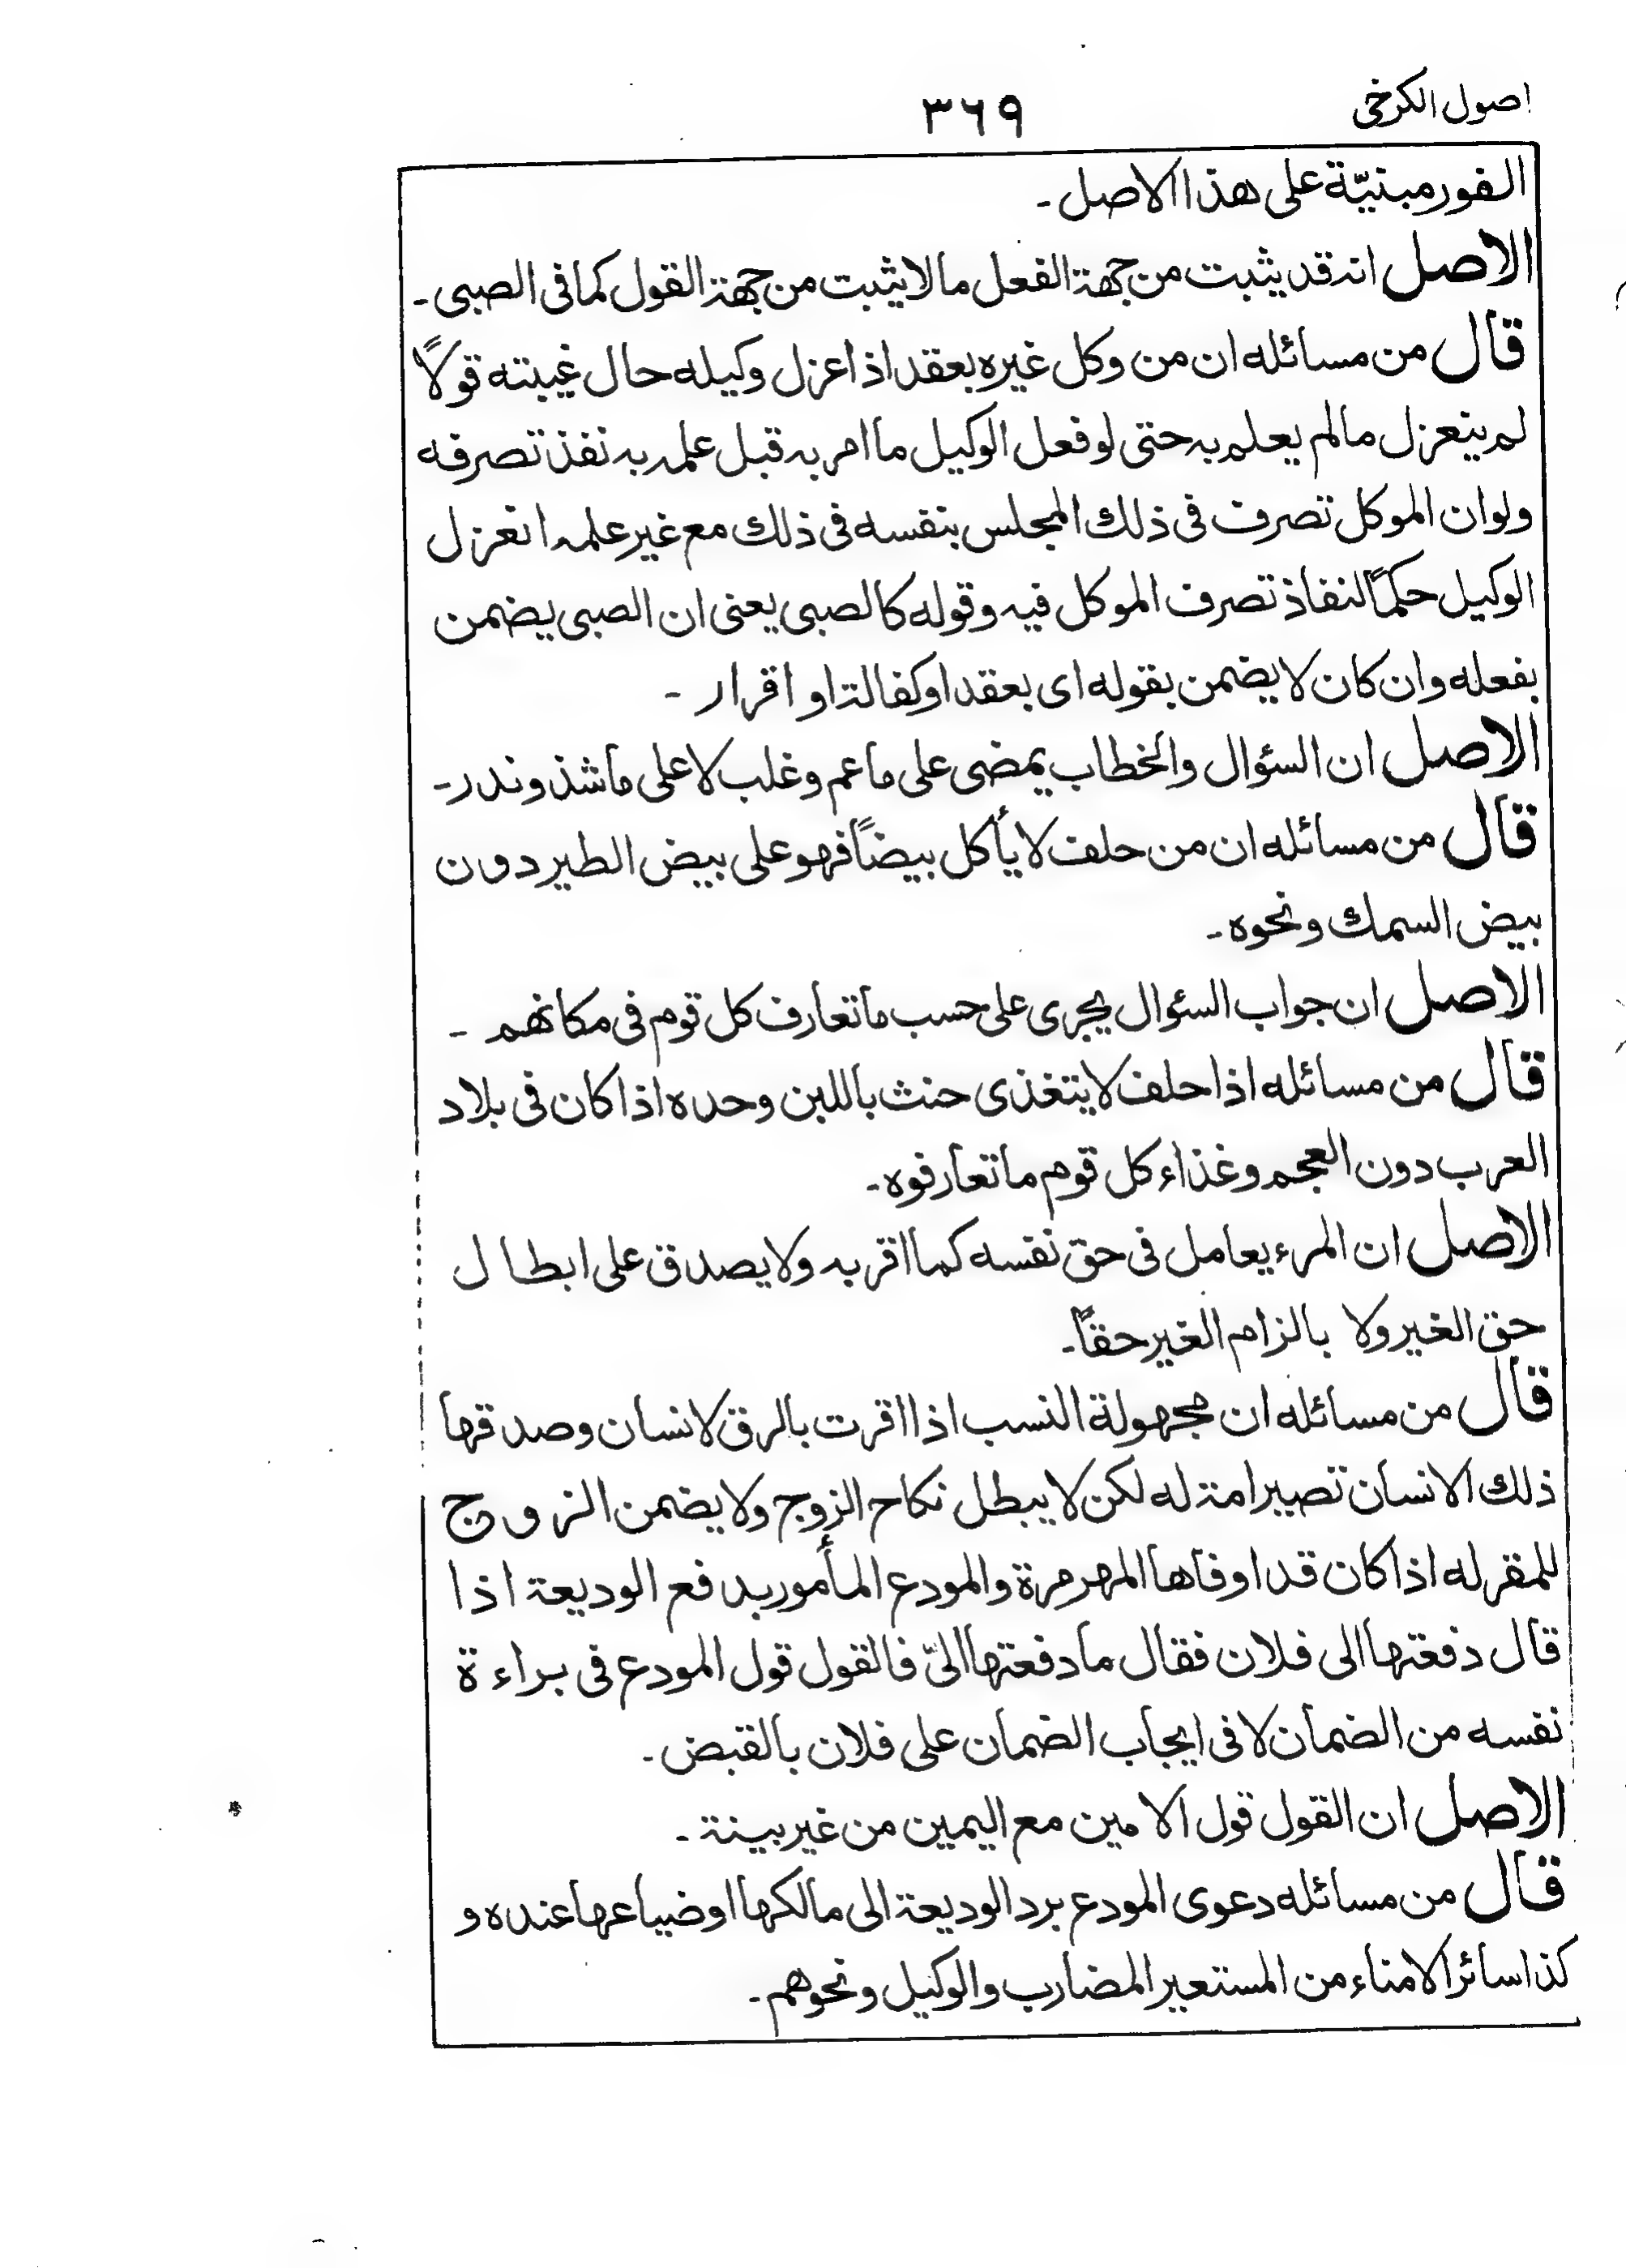 اصول الكرخى
٣٦٩
الفور مبنيّة على هذا الاصل ـ
الاصل انه قد يثبت من جهة الفعل ما لا يثبت من جهة القول كما فى الصبى ـ
قال من مسائله ان من وكل غيره بعقد اذا عزل وكيله حال غيبته قولاً
لم ينعزل ما لم يعلم به حتى لو فعل الوكيل ما امر به قبل علمه به نفذ تصرفه
ولو ان الموكل تصرف فى ذلك المجلس بنفسه فى ذلك مع غير علمه انعزل
الوكيل حكمًا لنفاذ تصرف الموكل فيه وقوله كالصبى يعنى ان الصبى يضمن
بفعله وان كان لا يضمن بقوله اى بعقد او كفالة او اقرار ـ
الاصل ان السؤال والخطاب يمضى على ما عم وغلب لا على ما شذ وندر ـ
قال من مسائله ان من حلف لا يأكل بيضًا فهو على بيض الطير دون
بيض السمك ونحوه ـ
الاصل ان جواب السؤال يجرى على حسب ما تعارف كل قوم فى مكانهم ـ
قال من مسائله اذا حلف لا يتغذى حنث باللبن وحده اذا كان فى بلاد
العرب دون العجم وغذاء كل قوم ما تعارفوه ـ
الاصل ان المرء يعامل فى حق نفسه كما اقر به ولا يصدق على ابطال
حق الغير ولا بالزام الغير حقاً ـ
قال من مسائله ان مجهولة النسب اذا اقرت بالرق لانسان وصدقها
ذلك الانسان تصير امة له لكن لا يبطل نكاح الزوج ولا يضمن الزوج
للمقر له اذا كان قد اوفاها المهر مرة والمودع المأمور بدفع الوديعة اذا
قال دفعتها الى فلان فقال ما دفعتها الىّ فالقول قول المودع فى براءة
نفسه من الضمان لا فى ايجاب الضمان على فلان بالقبض ـ
الاصل ان القول قول الامين مع اليمين من غير بينة ـ
قال من مسائله دعوى المودع برد الوديعة الى مالكها او ضياعها عنده و
كذا سائر الامناء من المستعير المضارب والوكيل ونحوهم ـ